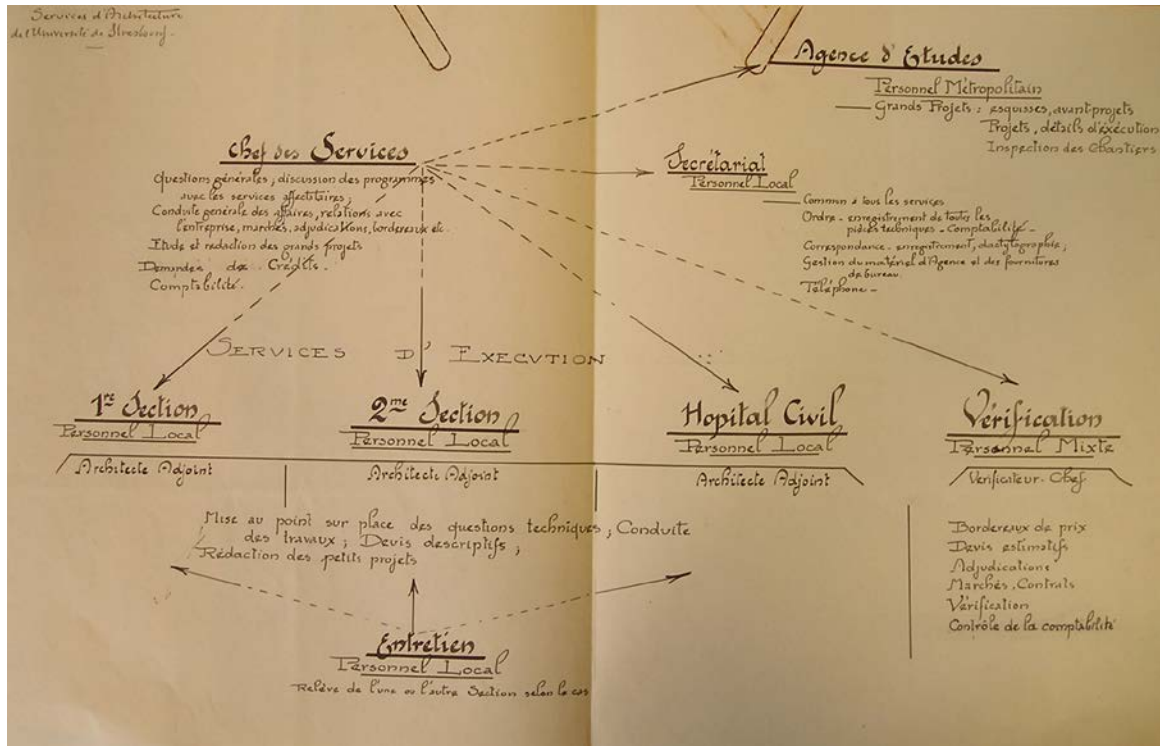 Services d'Architecture
de l'Université de Strasbourg.
Agence d'Etudes
Personnel Métropolitain
Grands Projets : esquisses, avant-projets
Projets, détails d'exécution
Inspection des Chantiers
Chef des Services
Questions générales ; discussion des programmes
avec les services affectataires ;
Conduite générale des affaires, relations avec
l'entreprise, marchés, adjudications, bordereaux etc.
Etude et rédaction des grands projets
Demandes de Crédits.
Comptabilité.
Secrétariat
Personnel Local
Commun à tous les services
Ordre - enregistrement de toutes les
pièces techniques - Comptabilité -
Correspondance - enregistrement, dactylographie ;
Gestion du matériel d'Agence et des fournitures
de bureau.
Téléphone -
SERVICES D'EXECUTION
1re Section
Personnel Local
Architecte Adjoint
2me Section
Personnel Local
Architecte Adjoint
Hopital Civil
Personnel Local
Architecte Adjoint
Vérification
Personnel Mixte
Vérificateur-Chef
Mise au point sur place des questions techniques ; Conduite
des travaux ; Devis descriptifs ;
Rédaction des petits projets
Bordereaux de prix
Devis estimatifs
Adjudications
Marchés, Contrats
Vérification
Contrôle de la comptabilité
Entretien
Personnel Local
Relève de l'une ou l'autre Section selon le cas